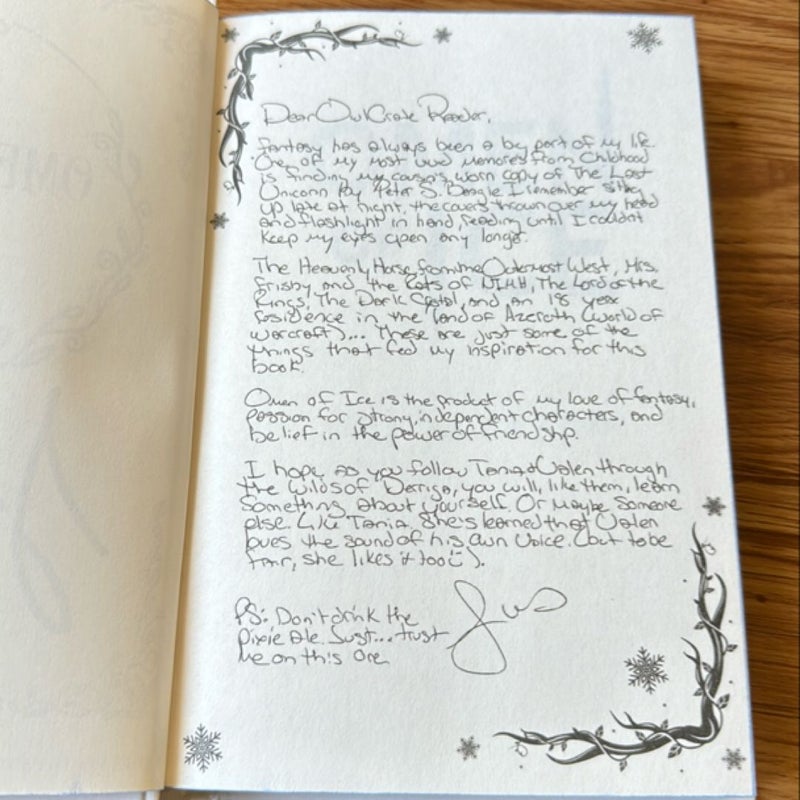 Dear OwlCrate Reader,
Fantasy has always been a big part of my life.
One of my most vivid memories from Childhood
is finding my cousin's worn copy of The Last
Unicorn by Peter S. Beagle. I remember staying
up late at night, the covers thrown over my head
and flashlight in hand, reading until I couldn't
keep my eyes open any longer.
The Heavenly Horse from the Outermost West, Mrs.
Frisby and the Rats of NIMH, The Lord of the
Rings, The Dark Crystal, and an 18 year
residence in the land of Azeroth (World of
Warcraft)... These are just some of the
things that fed my inspiration for this
book.
Omen of Ice is the product of my love of fantasy,
passion for strong, independent characters, and
belief in the power of friendship.
I hope as you follow Tania & Valen through
the wilds of you will, like them, learn
something about yourself. Or maybe someone
else. Like Tania. She's learned that Valen
loves the sound of his own voice. (but to be
fair, she likes it too ☺).
PS: Don't drink the
Pixie Ale. Just... trust
me on this one